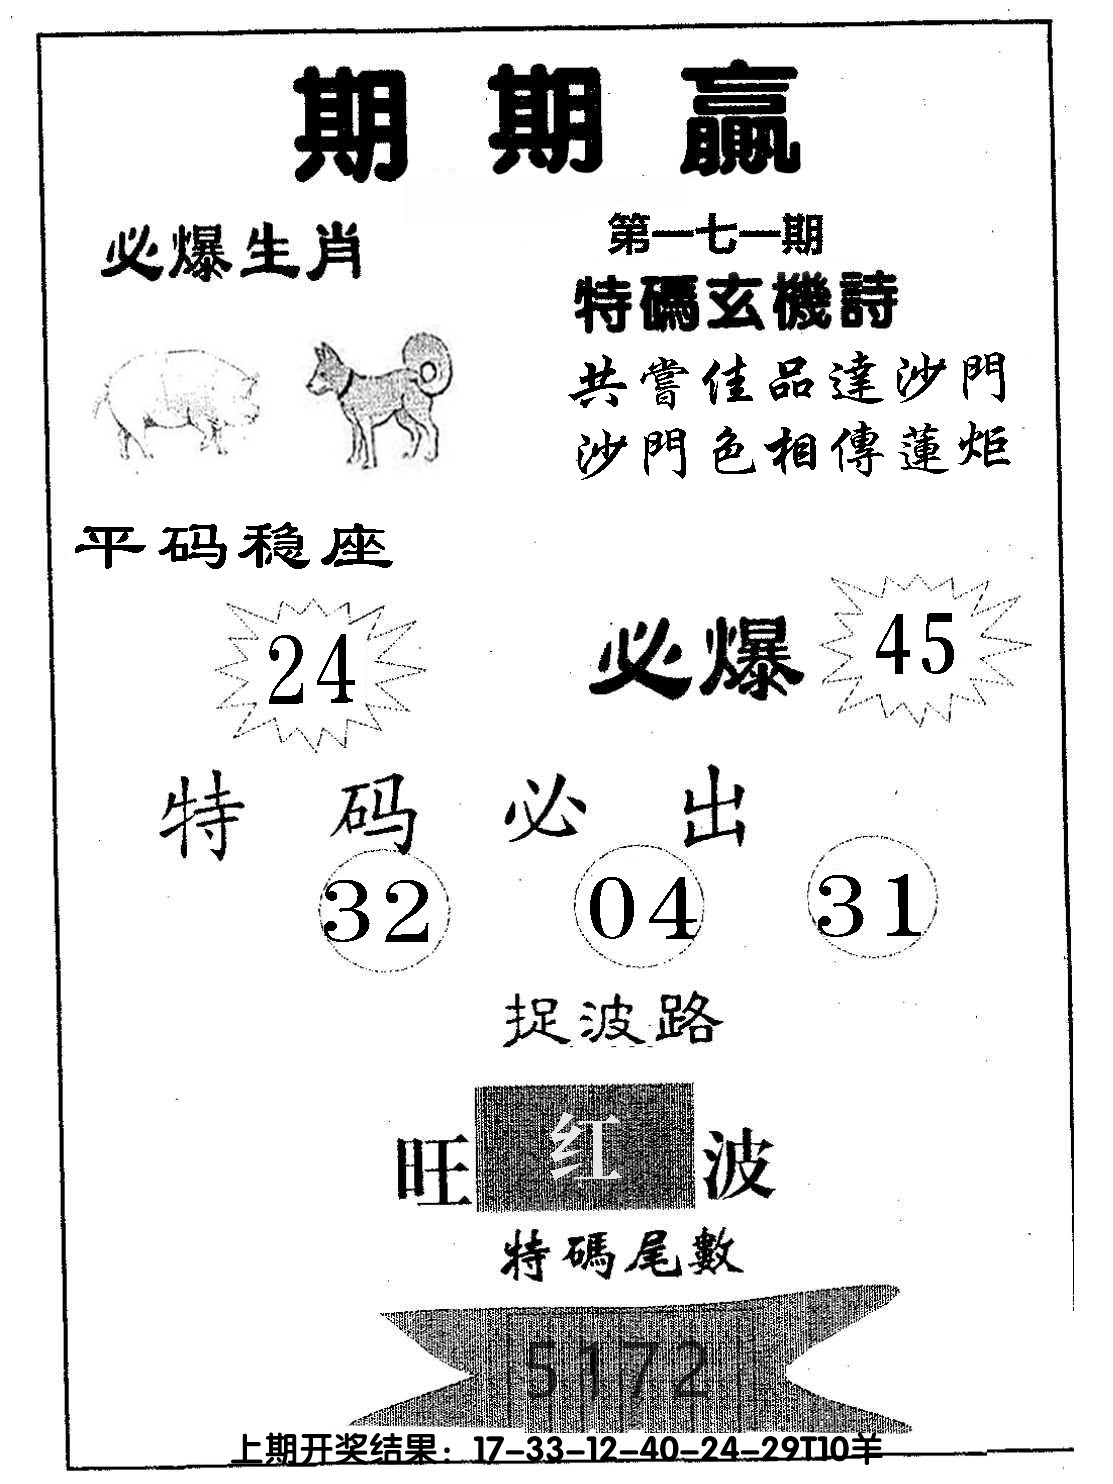 期期赢
必爆生肖
第一七一期
特碼玄機詩
共嘗佳品達沙門
沙門色相傳蓮炬
平码稳座
24
必爆 45
特码必出
32 04 31
捉波路
旺 红 波
特碼尾數
5172
上期开奖结果：17-33-12-40-24-29T10羊